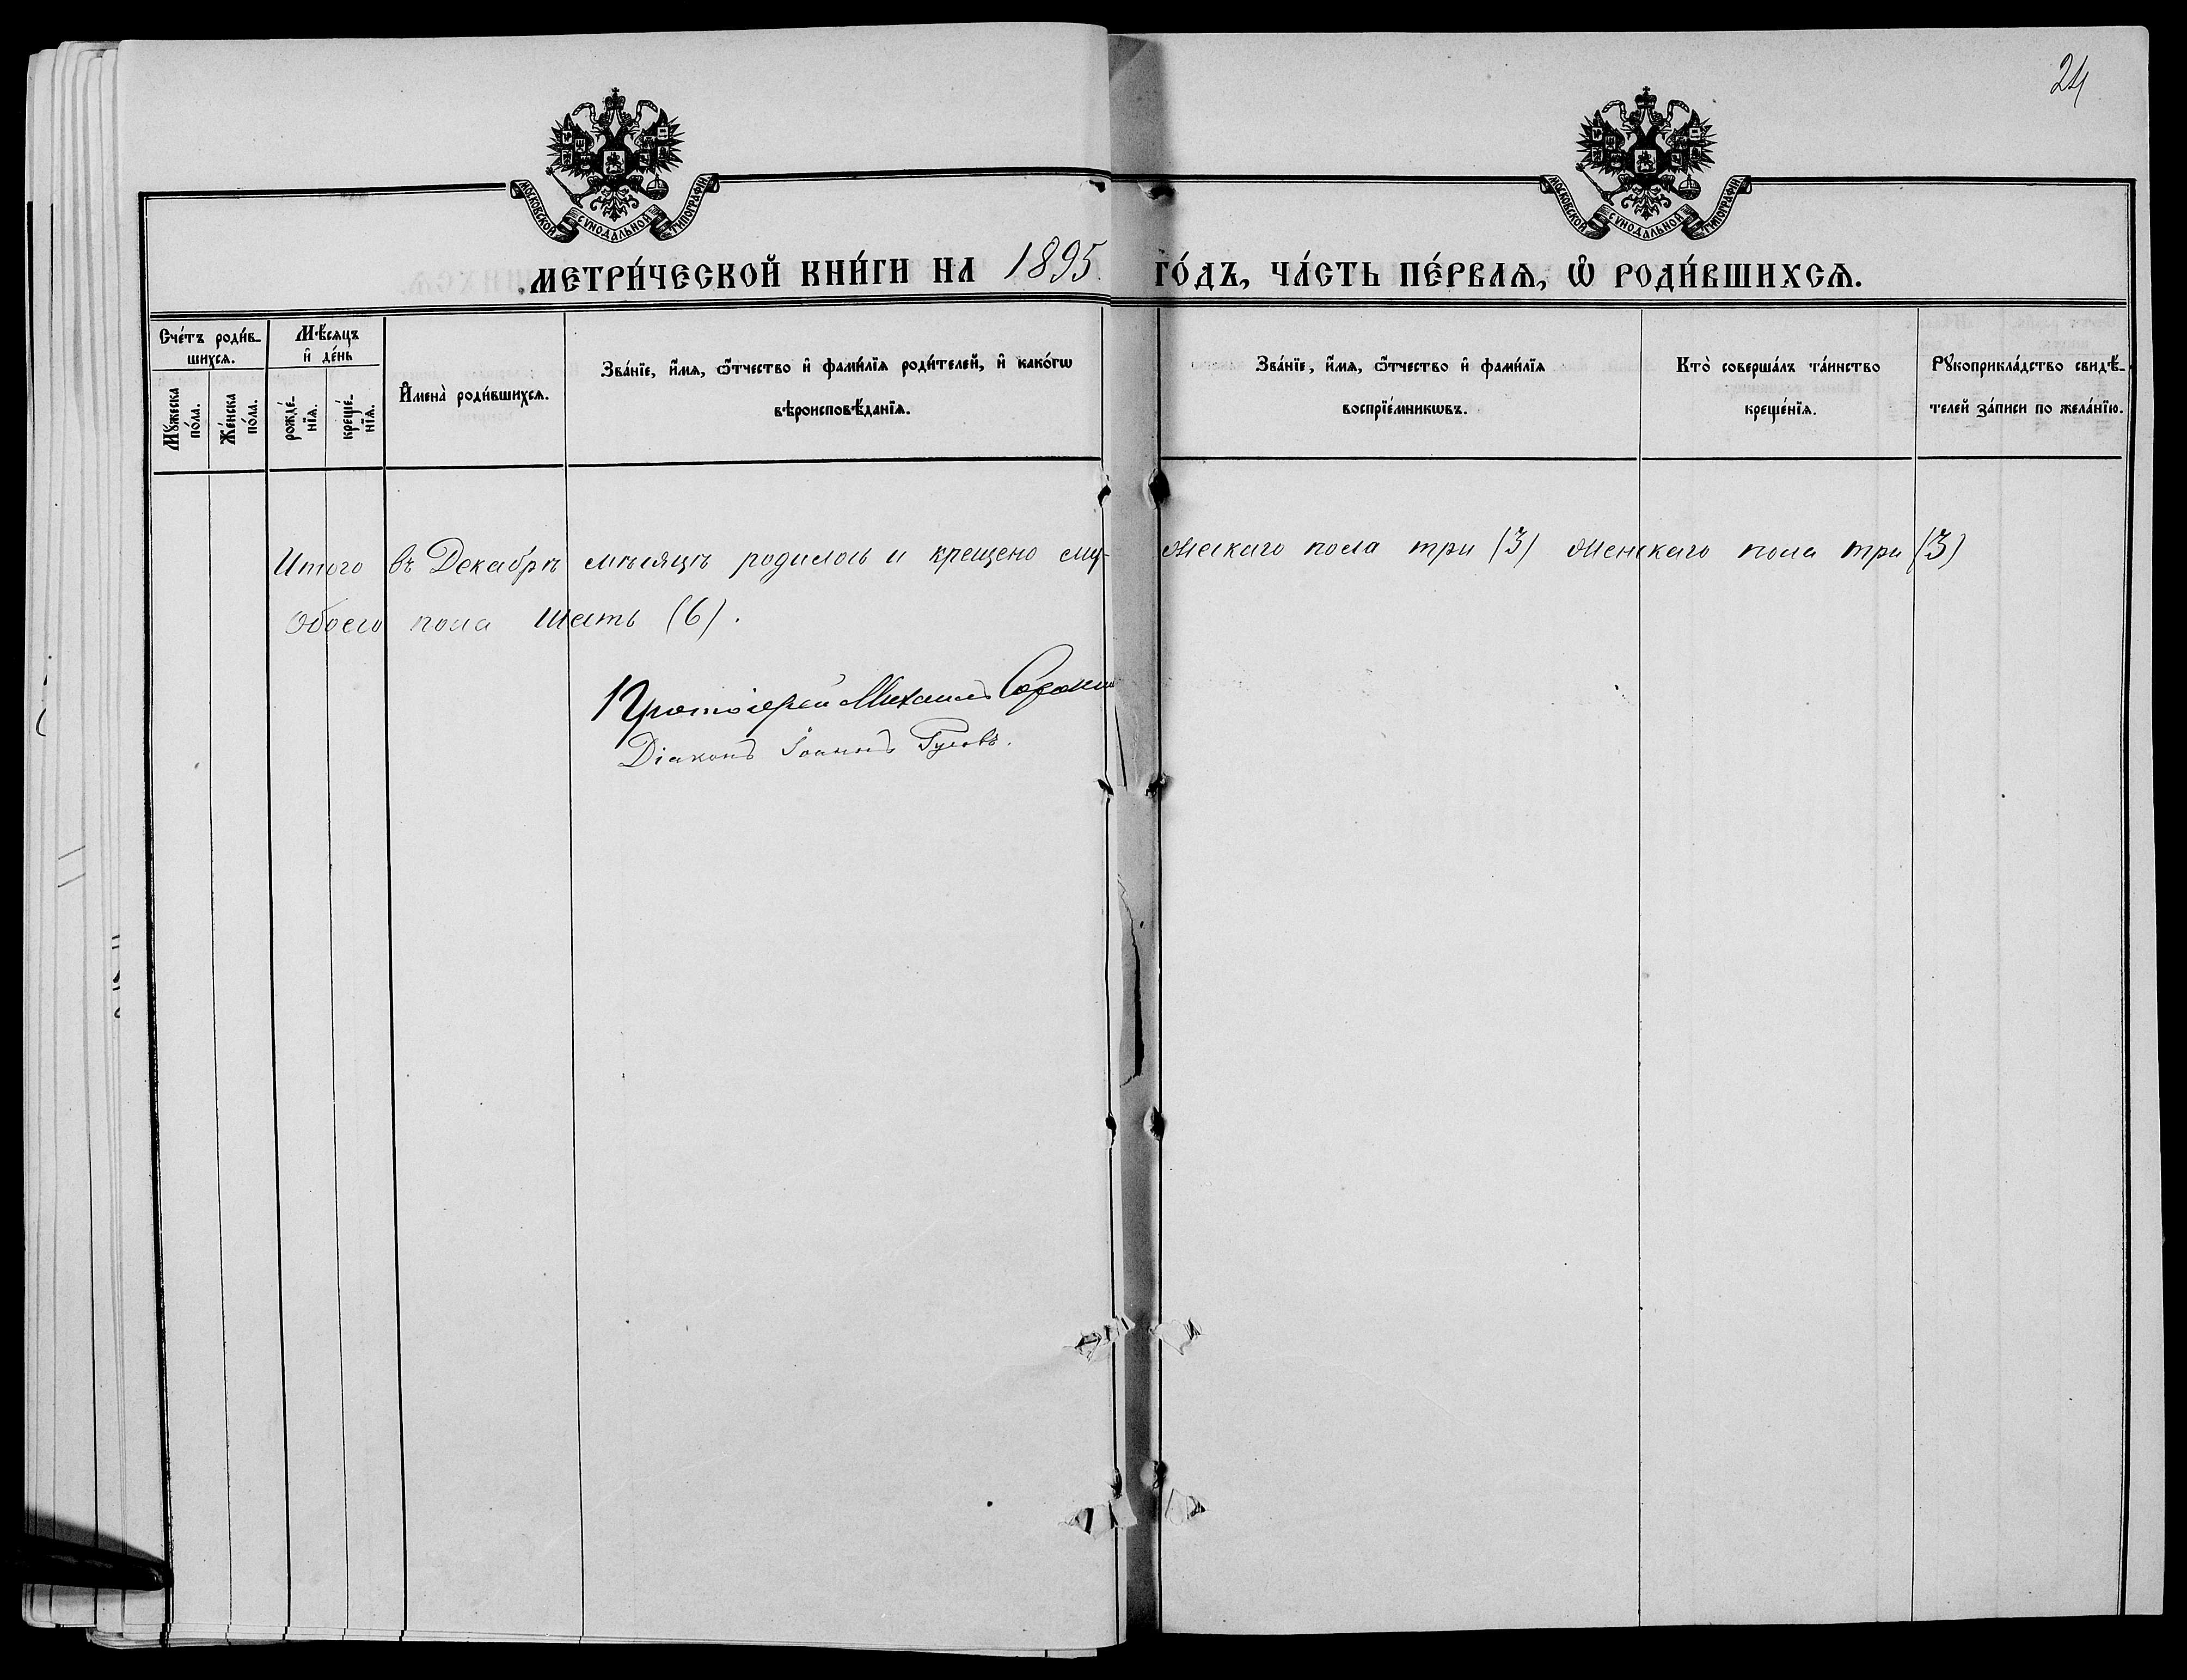 24
МОСКОВСКОЙ СѴНОДАЛЬНОЙ ТИПОГРАФІИ.
МОСКОВСКОЙ СѴНОДАЛЬНОЙ ТИПОГРАФІИ.
МЕТРИ́ЧЕСКОЙ КНИ́ГИ НА 1895 ГО́ДЪ, ЧА́СТЬ ПЕ́РВАѦ, Ѡ҆ РОДИ́ВШИХСѦ.
Сче́тъ роди́в-
шихсѧ.
Мꙋ́жеска по́ла.
Же́нска по́ла.
Мѣ́сѧцъ
и҆ де́нь
рожде́-нїѧ.
креще́-нїѧ.
И҆мена̀ роди́вшихсѧ.
Зва́нїе, и҆́мѧ, ѻ҆́тчество и҆ фами́лїѧ роди́телей, и҆ како́гѡ
вѣроисповѣ́данїѧ.
Зва́нїе, и҆́мѧ, ѻ҆́тчество и҆ фами́лїѧ
воспрїе́мникѡвъ.
Кто̀ соверша́лъ та́инство
креще́нїѧ.
Рꙋкоприкла́дство свидѣ́-
телей за́писи по жела́нїю.
Итого въ Декабрѣ мѣсяцѣ родилось и крещено му- жескаго пола три (3) женскаго пола три (3)
Обоего пола шесть (6).
Протоіерей Михаилъ
Діаконъ Іоаннъ Гусевъ.